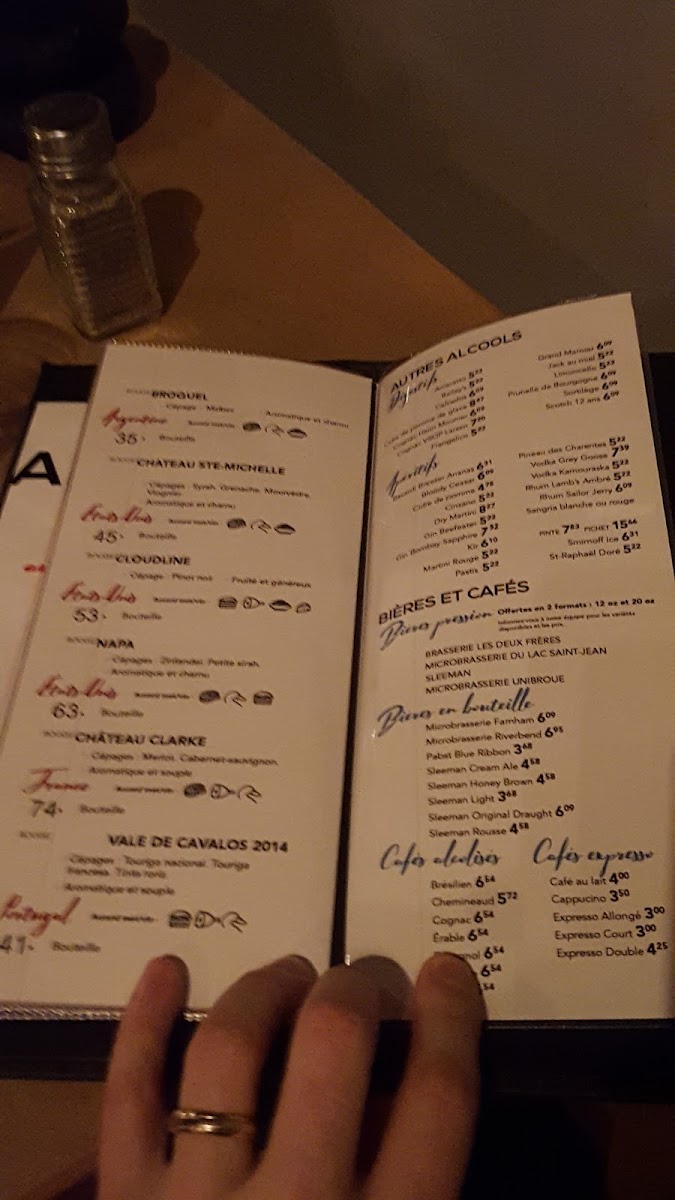 A
BROQUEL
Cépage : Malbec
Aromatique et charnu
Argentine
35.
Bouteille
CHÂTEAU STE-MICHELLE
Cépages : Syrah, Grenache, Mourvèdre,
Viognier
Aromatique et charnu
États-Unis
45.
Bouteille
CLOUDLINE
Cépage : Pinot noir
Fruité et généreux
États-Unis
53.
Bouteille
NAPA
Cépages : Zinfandel, Petite sirah,
Aromatique et charnu
États-Unis
63.
Bouteille
CHÂTEAU CLARKE
Cépages : Merlot, Cabernet-sauvignon,
Aromatique et souple
France
74.
Bouteille
VALE DE CAVALOS 2014
Cépages : Touriga nacional, Touriga
francesa, Tinta roriz
Aromatique et souple
Portugal
41.
Bouteille
AUTRES ALCOOLS
Digestifs
Amaretto 5 22
Cognac VSOP
Frangelico 5 22
Grand Marnier 6 09
Jack au miel 5 22
Limoncello 5 22
Prunelle de Bourgogne 6 09
Sortilège 6 09
Scotch 12 ans 6 09
Apéritifs
Bacardi Breezer Ananas 6 31
Bloody Ceasar 6 09
Cidre de pomme 4 78
Cinzano 5 22
Dry Martini 8 27
Gin Beefeater 5 22
Gin Bombay Sapphire 7 52
Kir 6 10
Martini Rouge 5 22
Pastis 5 22
Pineau des Charentes 5 22
Vodka Grey Goose 7 39
Vodka Kamouraska 5 22
Rhum Lamb's Ambré 5 22
Rhum Sailor Jerry 6 09
Sangria blanche ou rouge
PINTE 7 83 PICHET 15 66
Smirnoff Ice 6 31
St-Raphaël Doré 5 22
BIÈRES ET CAFÉS
Bières pression Offertes en 2 formats : 12 oz et 20 oz
Informez-vous à notre équipe pour les variétés
disponibles et les prix.
BRASSERIE LES DEUX FRÈRES
MICROBRASSERIE DU LAC SAINT-JEAN
SLEEMAN
MICROBRASSERIE UNIBROUE
Bières en bouteille
Microbrasserie Farnham 6 09
Microbrasserie Riverbend 6 95
Pabst Blue Ribbon 3 68
Sleeman Cream Ale 4 58
Sleeman Honey Brown 4 58
Sleeman Light 3 68
Sleeman Original Draught 6 09
Sleeman Rousse 4 58
Cafés alcolisés
Brésilien 6 54
Chemineaud 5 72
Cognac 6 54
Érable 6 54
gnol 6 54
6 54
54
Cafés expresso
Café au lait 4 00
Cappucino 3 50
Expresso Allongé 3 00
Expresso Court 3 00
Expresso Double 4 25